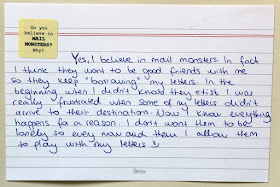 Do you
believe in
MAIL
MONSTERS?
Why?
Yes, I believe in mail monsters. In fact
I think they want to be good friends with me
so they keep "borrowing" my letters. In the
beginning when I didn't know they etist I was
really frustrated when some of my letters didn't
arrive to their destination. Now I know everything
happens for a reason. I don't want them to be
lonely so every now and then I allow them
to play with my letters